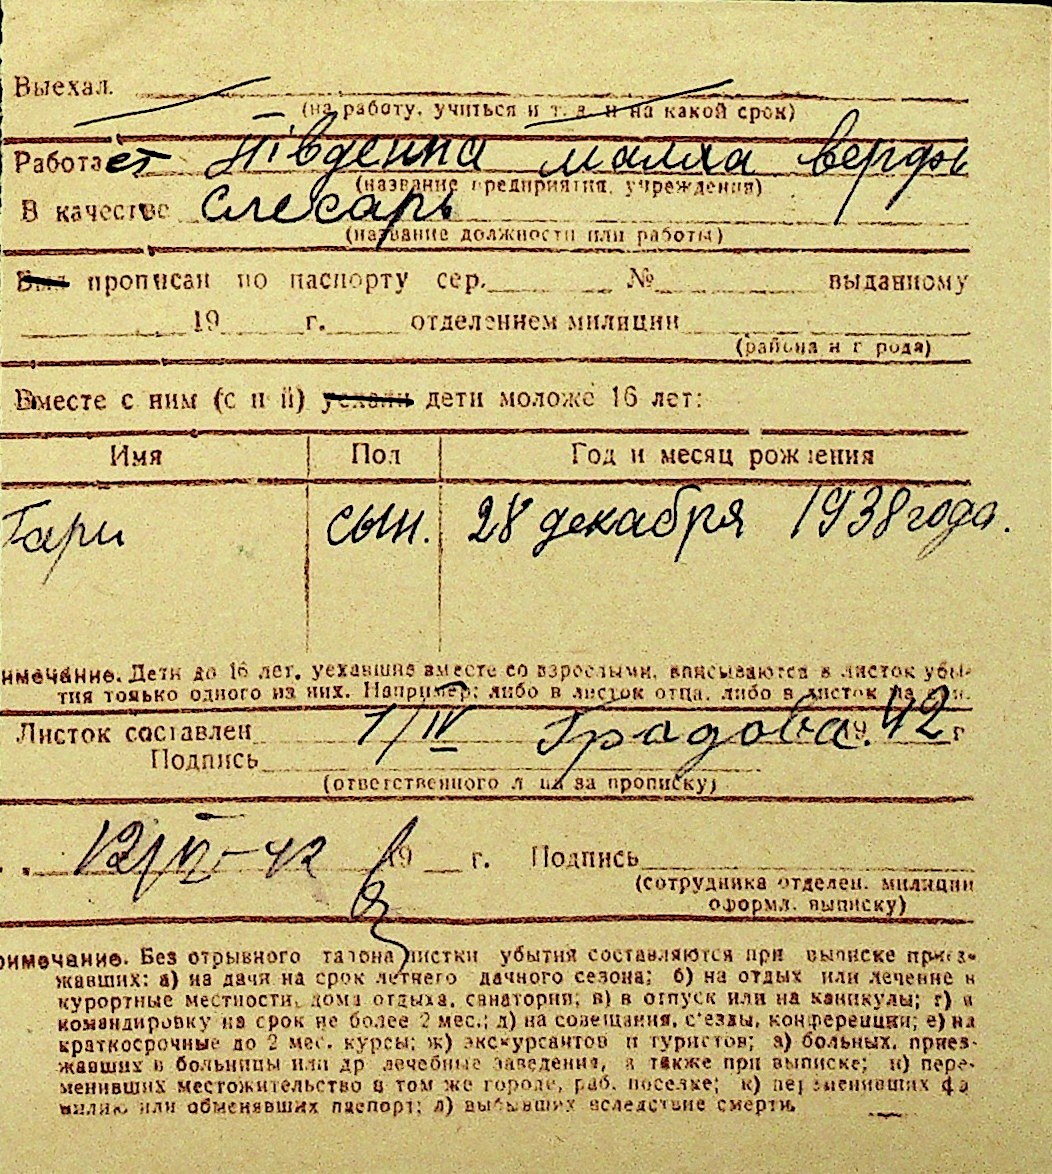 Выехал
(на работу, учиться и т. д. и на какой срок)
Работает Південна малха верфь
(название предприятия, учреждения)
В качестве слесарь
(название должности или работы)
Был прописан по паспорту сер. № выданному
19 г. отделением милиции
(района и города)
Вместе с ним (с ней) уехали дети моложе 16 лет:
Имя Пол Год и месяц рождения
Гари сын. 28 декабря 1938 года.
имечание. Дети до 16 лет, уехавшие вместе со взрослыми, вписываются в листок убы-
тия только одного из них. Например: либо в листок отца, либо в листок ма
Листок составлен 1/IV Градова. 1942 г
Подпись
(ответственного лица за прописку)
12/IV-42 19 г. Подпись
(сотрудника отделен. милиции
оформл. выписку)
римечание. Без отрывного талона листки убытия составляются при выписке приез-
жавших: а) на дачи на срок летнего дачного сезона; б) на отдых или лечение в
курортные местности, дома отдыха, санатории; в) в отпуск или на каникулы; г) в
командировку на срок не более 2 мес.; д) на совещания, с'езды, конференции; е) на
краткосрочные до 2 мес. курсы; ж) экскурсантов и туристов; з) больных, приез-
жавших в больницы или др лечебные заведения, а также при выписке; и) пере-
менивших местожительство в том же городе, раб. поселке; к) переменивших фа
милию или обменявших паспорт; л) выбывших вследствие смерти.